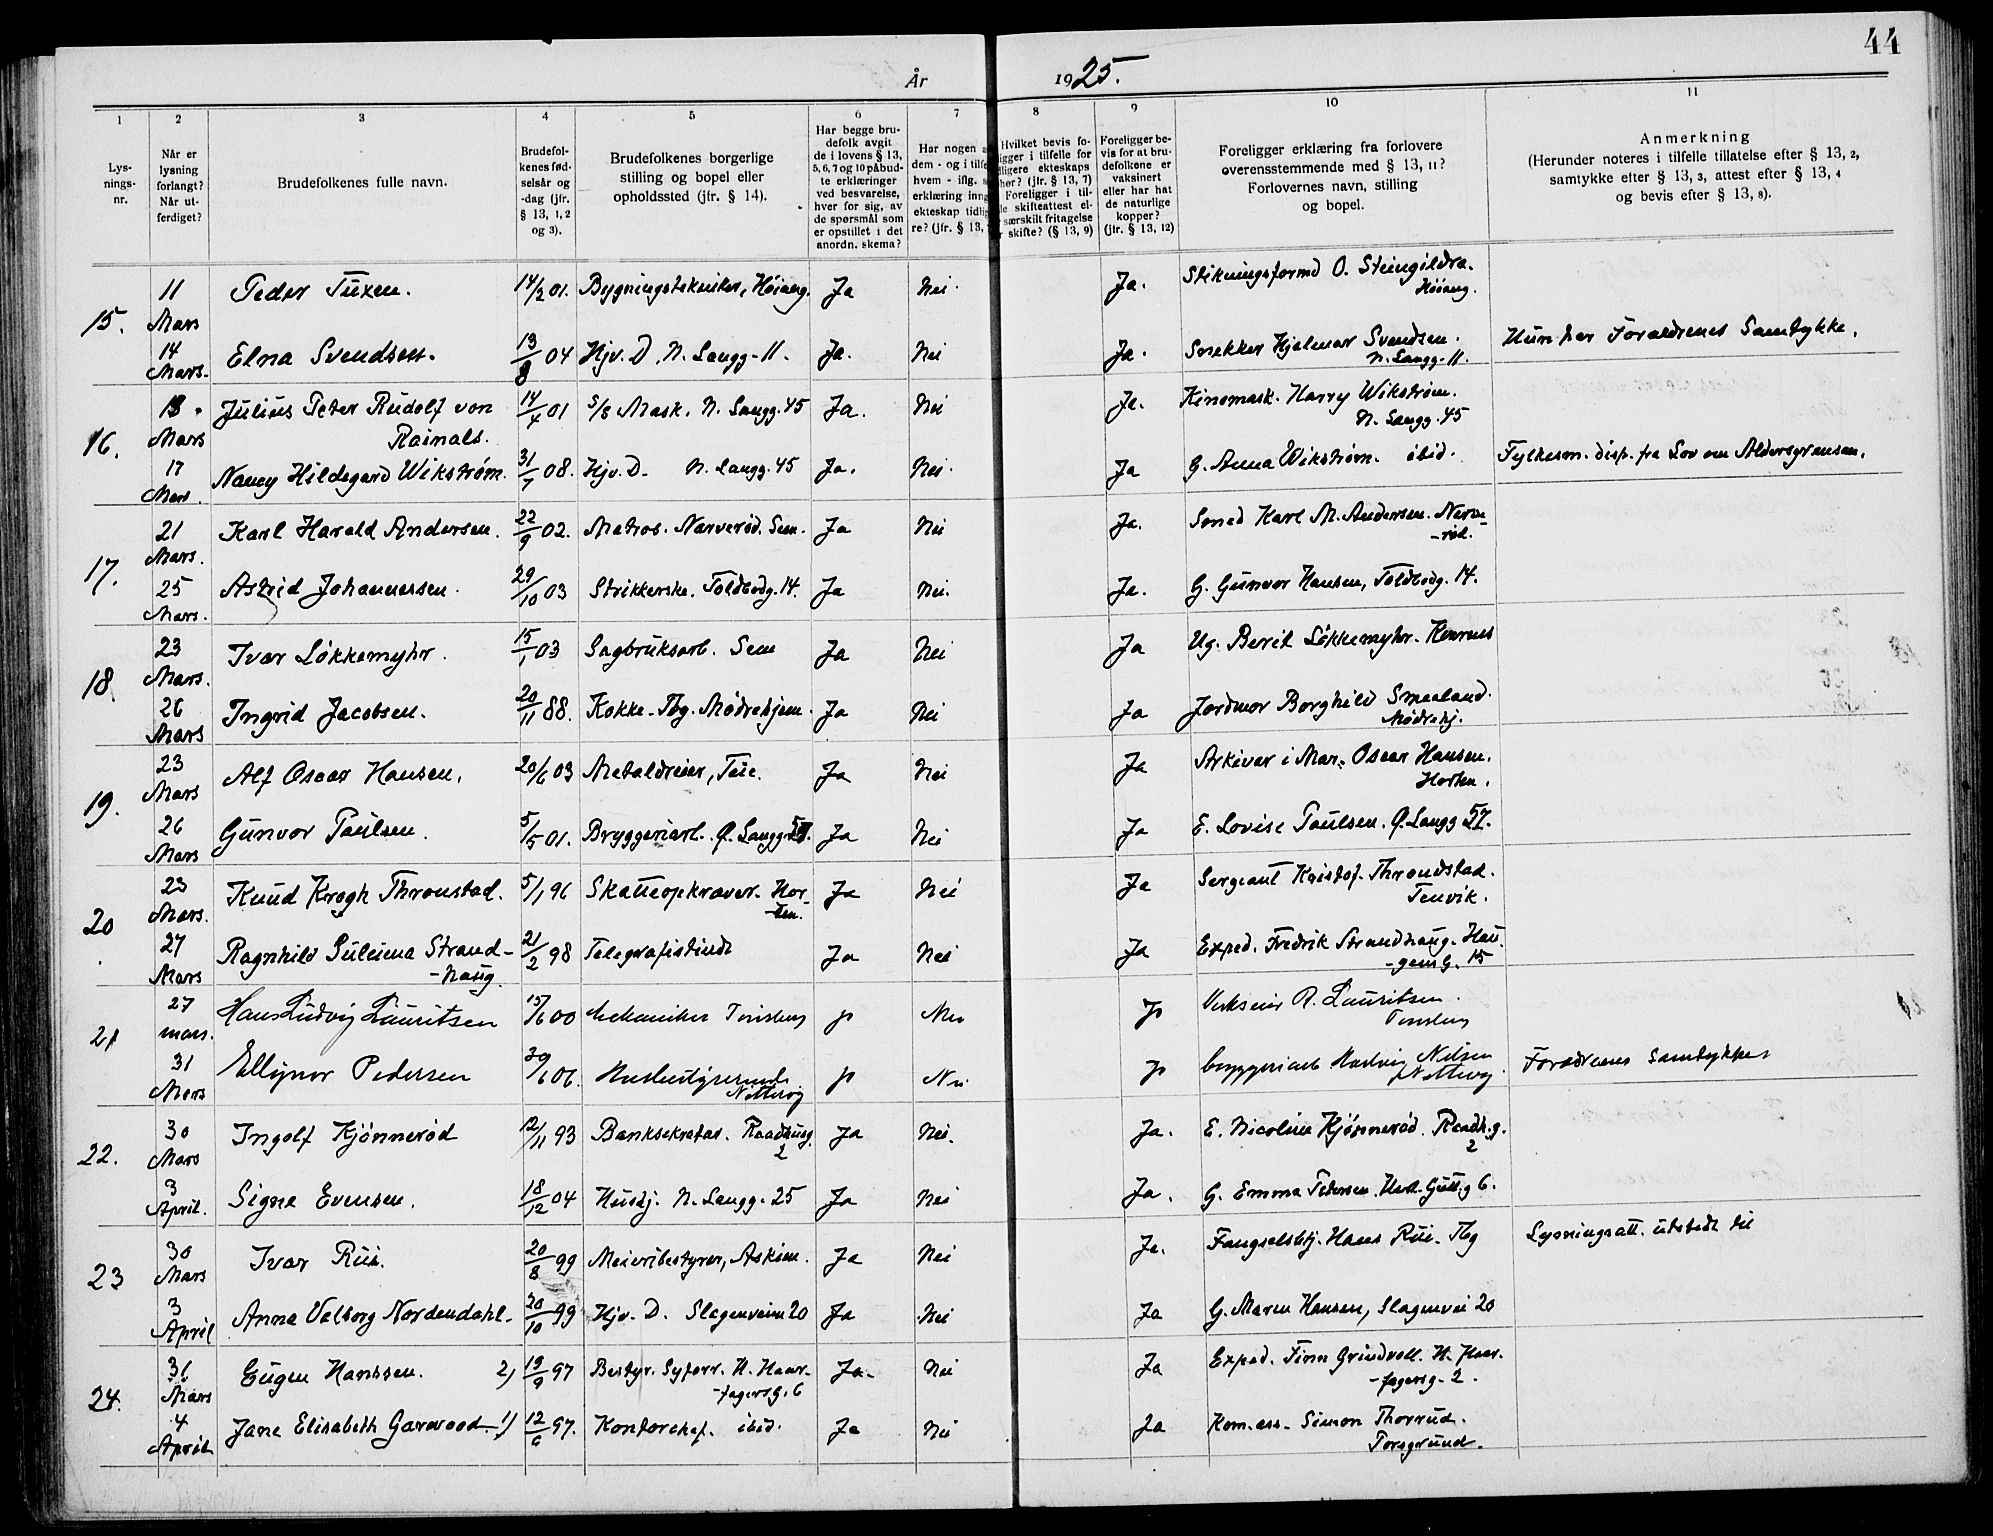 44
År 1925.
1 2 3 4 5 6 7 8 9 10 11
Lys-
nings-
nr.
Når er
lysning
forlangt?
Når ut-
ferdiget?
Brudefolkenes fulle navn.
Brudefol-
kenes fød-
selsår og
-dag (jfr.
§ 13, 1, 2
og 3).
Brudefolkenes borgerlige
stilling og bopel eller
opholdssted (jfr. § 14).
Har begge bru-
defolk avgit
de i lovens § 13,
5, 6, 7 og 10 påbud-
te erklæringer
ved besvarelse,
hver for sig, av
de spørsmål som
er opstillet i det
anordn. skema?
Har nogen a
dem - og i tilfe
hvem - iflg. s
erklæring inng
ekteskap tidlig
re? (jfr. § 13,
Hvilket bevis fo-
igger i tilfelle for
dligere ekteskaps
hør? (jfr. § 13, 7)
Foreligger i til-
le skifteattest el-
særskilt fritagelse
skifte? (§ 13, 9)
Foreligger be-
vis for at bru-
defolkene er
vaksinert
eller har hat
de naturlige
kopper?
(jfr. § 13, 12)
Foreligger erklæring fra forlovere
overensstemmende med § 13, 11?
Forlovernes navn, stilling
og bopel.
Anmerkning
(Herunder noteres i tilfelle tillatelse efter § 13, 2,
samtykke efter § 13, 3, attest efter § 13, 4
og bevis efter § 13, 8).
15. 11 Mars Peder Tuxen. 14/2 01. Bygningstekniker, Høiang. Ja Nei. Ja. Stikningsformd O. Steingildra.
Høiang.
14 Mars. Elna Svendsen. 13/8 04 Hjv. D. N. Langg- 11. Ja. Nei Ja. Snekker Hjalmar Svendsen.
N. Langg- 11. Hun har Foraldrenes Samtykke.
16. 13. Mars Julius Peter Rudolf von
Rainals. 14/4 01 S/S Mask. N. Langg. 45 Ja. Nei Ja. Kinomask. Harry Wikstrøm.
N. Langg. 45
17 Mars Nancy Hildegard Wikstrøm. 31/7 08. Hjv. D. N. Langg. 45 Ja. Nei. Ja G. Anna Wikstrøm. ibid. Fylkesm. disp. fra Lov om Aldersgrensen.
17. 21 Mars. Karl Harald Andersen. 22/9 02. Matros. Narverød. Sem. Ja Nei Ja. Smed Karl M. Andersen. Narve-
-rød.
25 Mars. Astrid Johannessen. 29/10 03 Strikkerske. Toldbodg. 14. Ja Nei. Ja. G. Gunvor Hansen, Toldbodg. 14.
18. 23 Mars. Ivar Løkkemyhr. 15/1 03 Sagbruksarb. Sem Ja Nei Ja Ug. Berit Løkkemyhr.
26 Mars Ingrid Jacobsen. 20/11 88. Kokke. Tbg. Mødrehjem. Ja Nei Ja Jordmor Borghild Smaaland.
Mødrehj.
19. 23 Mars Alf Oscar Hansen. 20/6 03 Metaldreier, Teie. Ja Nei Ja Arkivar i Mar. Oscar Hansen.
Horten.
26 Mars Gunvor Paulsen. 5/5 01. Bryggeriarb. Ø. Langg 57. Ja Nei Ja E. Lovise Paulsen. Ø. Langg 57.
20. 23 Mars. Knud Krogh Thronstad. 5/1 96 Skatteopkræver. Hor-
-ten. Ja Nei Ja Sergeant Kristof. Throndstad.
Tenvik.
27 Mars Ragnhild Juleima Strand-
-haug. 21/2 98 Telegrafistinde Ja Nei Ja Exped. Fredrik Strandhaug. Hau-
-gens G. 15
21 27 mars. Hans Ludvig Lauritsen 15/6 00 Mekaniker Tønsberg Ja Nei Ja Verkseier R. Lauritsen.
Tønsberg
31 Mars Ellinor Pedersen 30/6 06. Husbestyrerinde
Nøtterøy Ja Nei Ja bryggeriarb Nilsen
Nøtterøy. Forældrenes Samtykke
22. 30 Mars Ingolf Kjønnerød 12/11 93 Banksekretær. Raadhusg.
2 Ja Nei. Ja. E. Nicoline Kjønnerød. Raadh.g.
2
3 April. Signe Evensen. 18/12 04 Hushj. N. Langg. 25 Ja Nei Ja. G. Emma Pedersen. 6.
23 30 Mars Ivar Rui. 20/8 99 Meieribestyrer, Askim. Ja Nei Ja. Fængselsbtj. Hans Rui. Tbg Lysningsatt. utstedt til
3 April Anna Valborg Nordendahl. 20/10 99 Hjv. D. Slagenveien 20 Ja Nei Ja G. Maren Hansen, Slagenvei 20
24. 31 Mars Eugen Hanssen. 2) 19/9 97 Bestyr. Syforr. H. Haar-
-fagersg. 6 Ja. Nei Ja Exped. Finn Grindvoll. H. Haar-
-fagersg- 2.
4 April Jane Elisabeth Garwood. 1) 12/6 97. Kontorchef. ibid. Ja Nei Ja Kom. ass. Simon Thorrud.
Porsgrund.